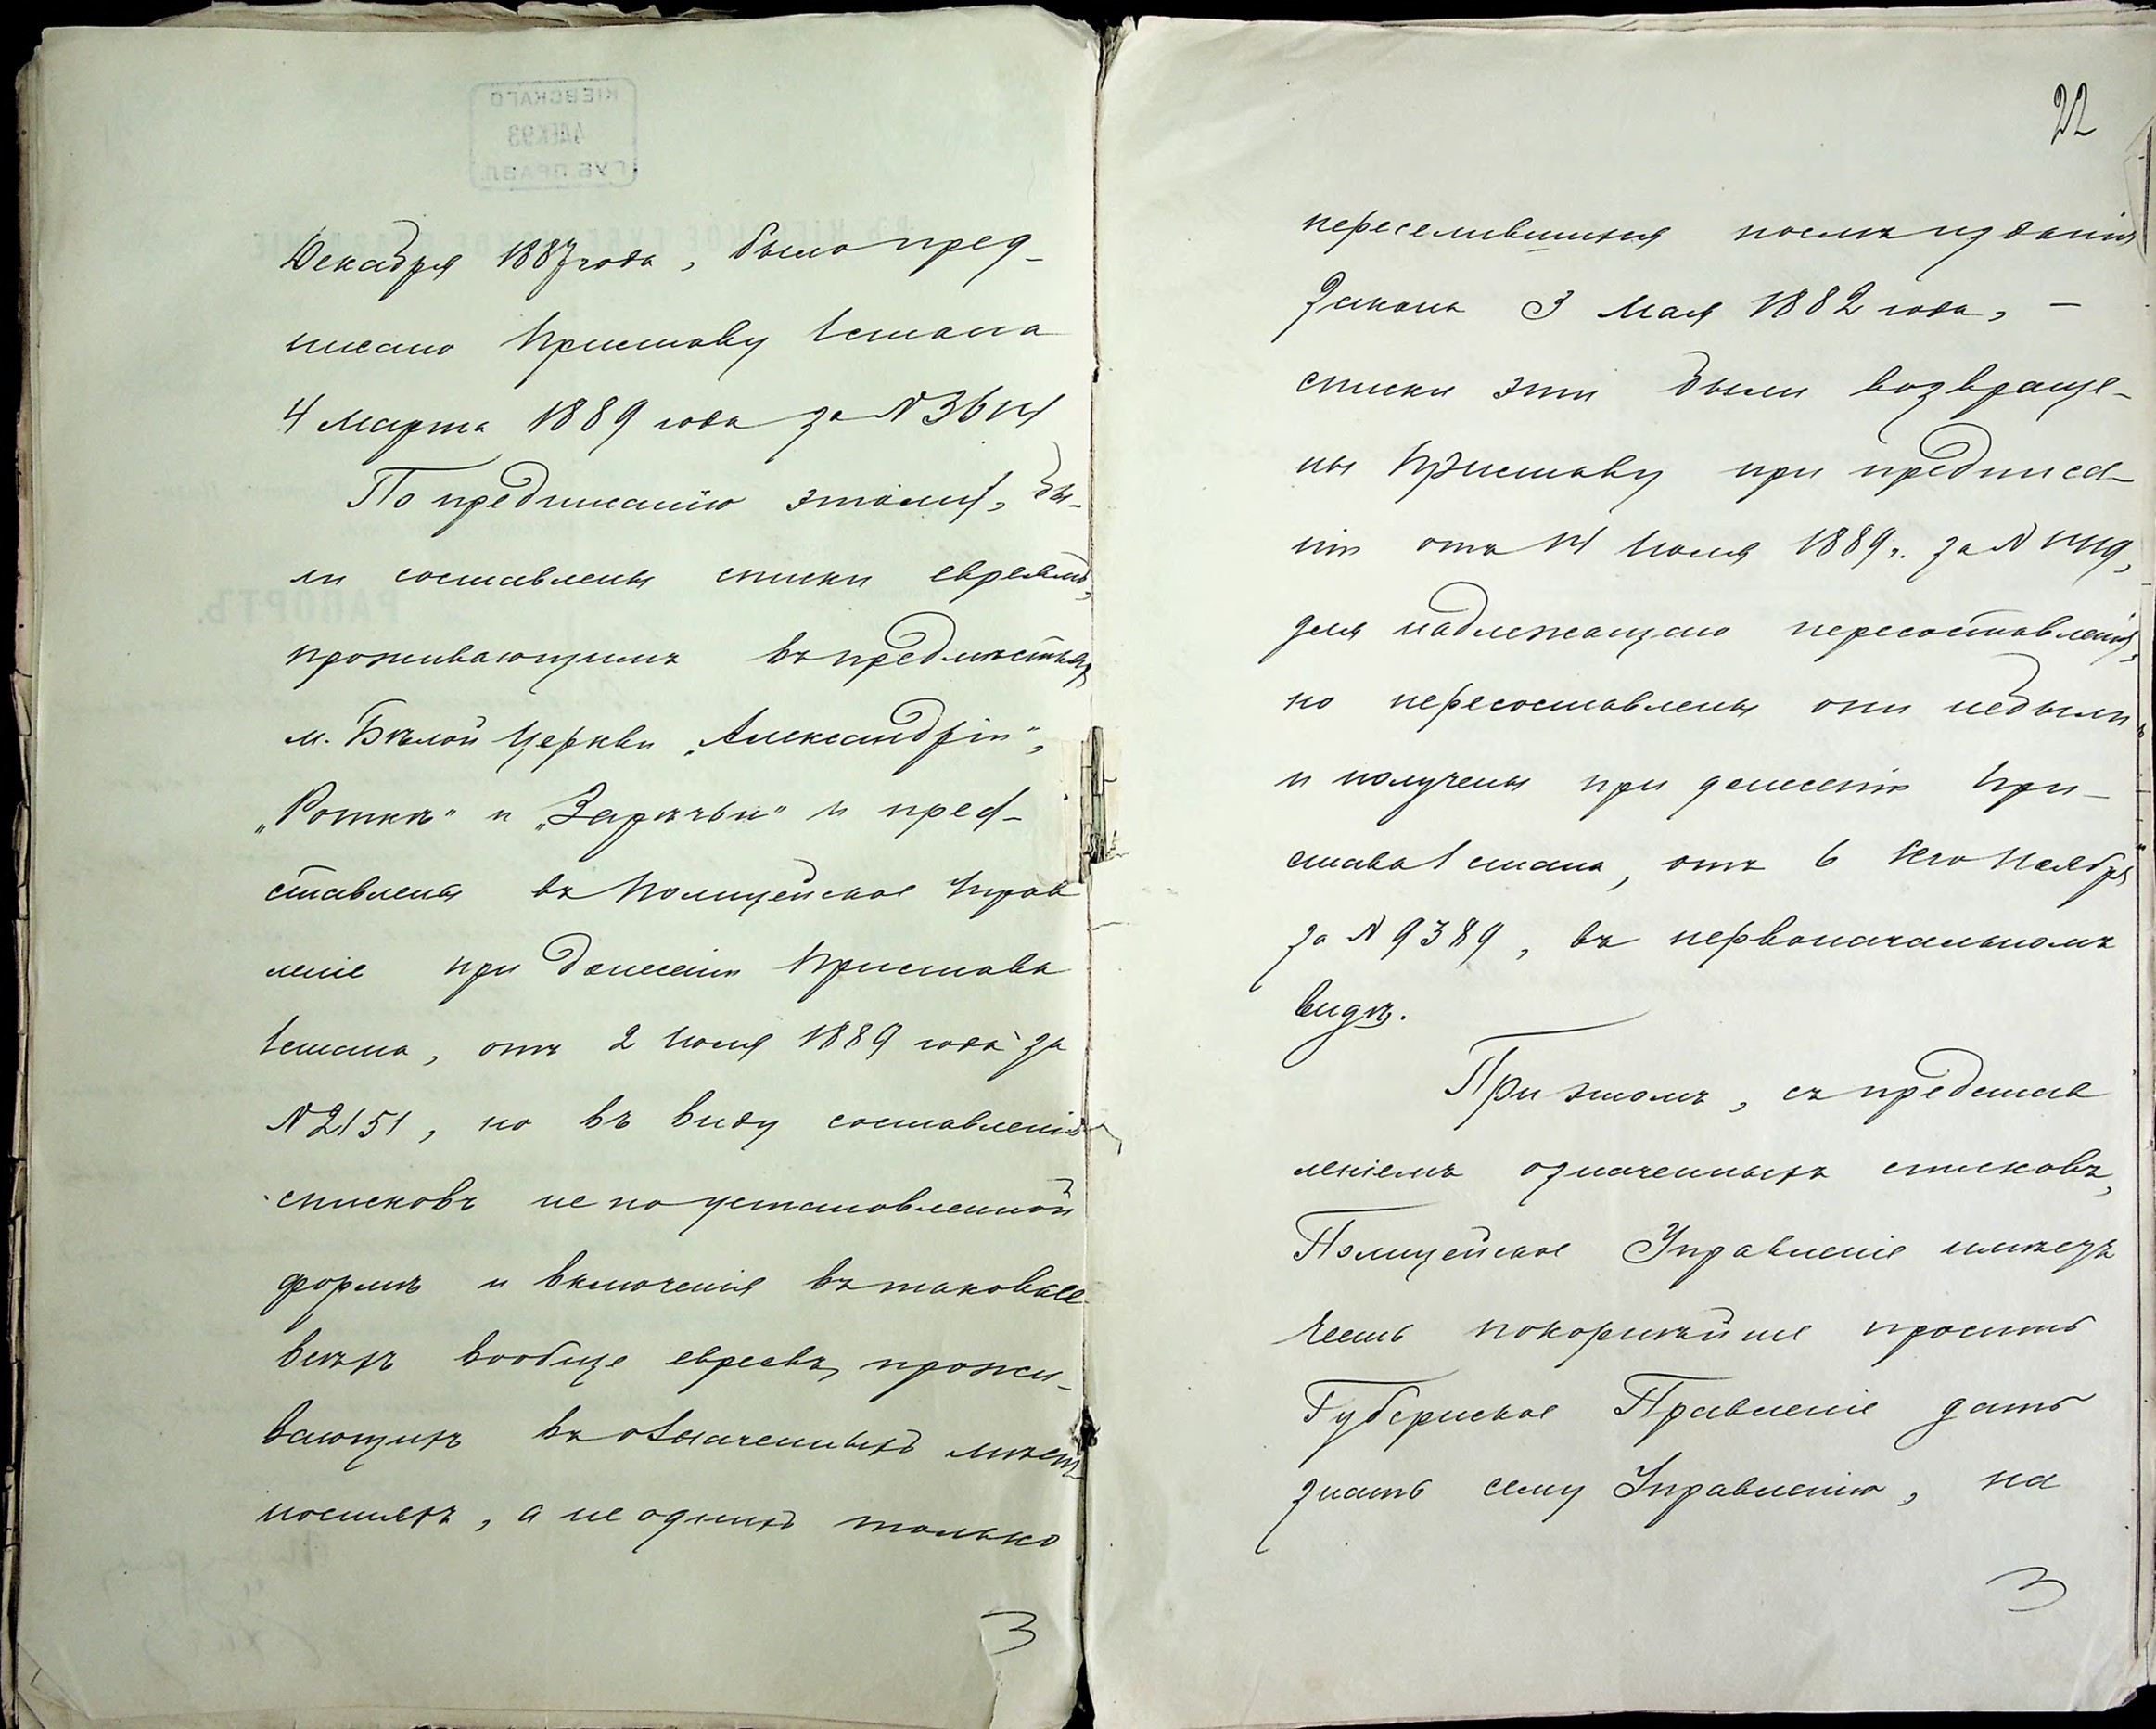 Декабря 1887 года, было пред-
писано Приставу 1 стана
4 Марта 1889 года за №3614
По предписанію этому, бы-
ли составлены списки евреямъ,
проживающимъ въ предмѣстьяхъ
м. Бѣлой Церкви „Александріи",
„Роткѣ" и „Зарѣчьи" и пред-
ставлены въ Полицейское Управ
леніе при донесеніи Пристава
1 стана, отъ 2 Іюля 1889 года за
№2151, но въ виду составленія
списковъ не по установленной
формѣ и включенія въ таковые
всѣхъ вообще евреевъ, прожи-
вающихъ въ означенныхъ мѣст
ностяхъ, а не однихъ только
3
22
переселившихся послѣ изданія
Закона 3 Мая 1882 года, —
списки эти были возвраще-
ны Приставу при предписа-
ніи отъ 14 Іюля 1889 г. за №
для надлежащаго пересоставленія,
но пересоставлены они не были
и получены при донесеніи При-
става 1 стана, отъ 6 сего Ноября
за № 9389, въ первоначальномъ
видѣ.
При этомъ, съ представ
леніемъ означенныхъ списковъ,
Полицейское Управленіе имѣетъ
честь покорнѣйше просить
Губернское Правленіе дать
знать сему Управленію, на
3
КІЕВСКАГО
4 ДЕК 93
ГУБ. ПРАВЛ.
РАПОРТЪ.